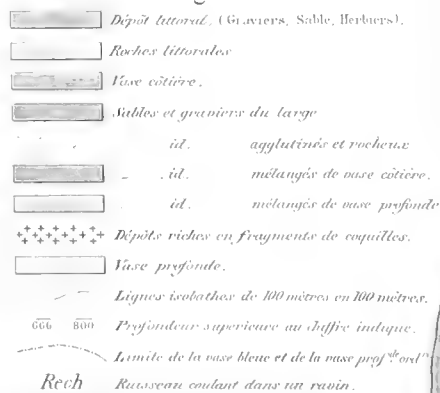 Dépôt littoral. (Graviers, Sable, Herbiers).
Roches littorales
Vase côtière.
Sables et graviers du large
id. agglutinés et rocheux
id. mélangés de vase côtière.
id. mélangés de vase profonde
Dépôts riches en fragments de coquilles.
Vase profonde.
Lignes isobathes de 100 mètres en 100 mètres.
666 800 Profondeur supérieure au chiffre indiqué.
Limite de la vase bleue et de la vase prof.de ord.re
Rech Ruisseau coulant dans un ravin.